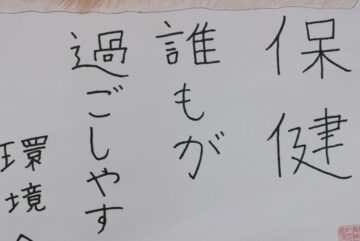 保健
誰もが
過ごしやす
環境